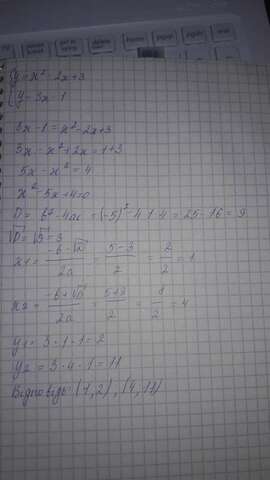 {y = x² - 2x + 3
{y = 3x - 1
3x - 1 = x² - 2x + 3
3x - x² + 2x = 1 + 3
5x - x² = 4
x² - 5x + 4 = 0
D = b² - 4ac = (-5)² - 4·1·4 = 25 - 16 = 9
√D = √9 = 3
x1 = (-b - √D)/2a = (5-3)/2 = 2/2 = 1
x2 = (-b + √D)/2a = (5+3)/2 = 8/2 = 4
y1 = 3·1 - 1 = 2
y2 = 3·4 - 1 = 11
Відповідь (1,2), (4,11)